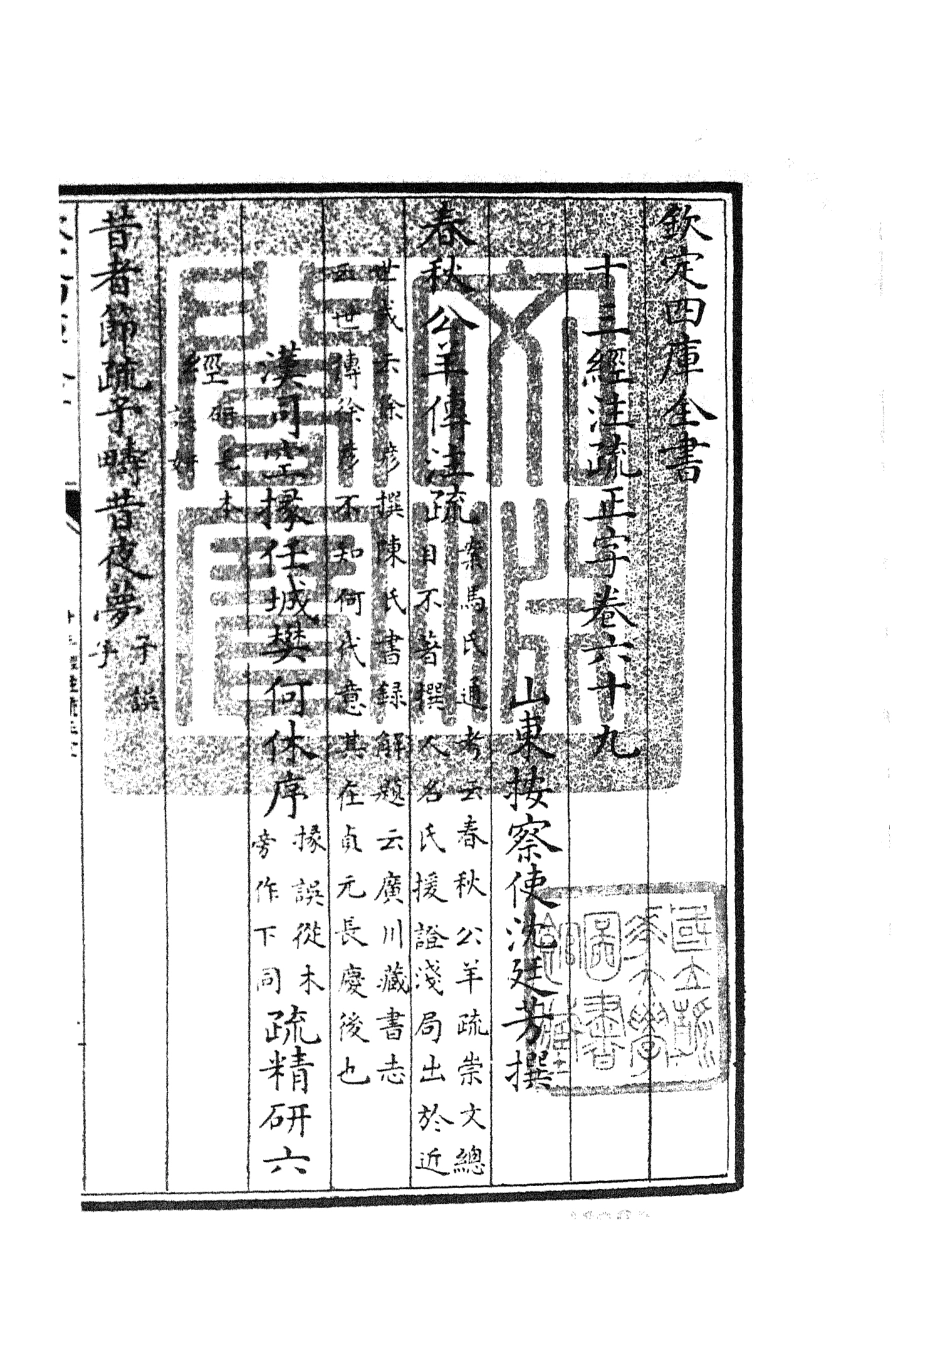 欽定四庫全書
十三經注疏正字卷六十九
山東按察使沈廷芳撰
春秋公羊傳注疏 案馬氏通考云春秋公羊疏崇文總
目不著撰人名氏援證淺局出於近
世或云徐彦撰陳氏書録解題云廣川藏書志
世傳徐彦不知何代意其在貞元長慶後也
漢司空掾任城樊何休序 掾誤從木
旁作下同 疏精研六
經 研毛本
誤妍
昔者節疏予疇昔夜夢